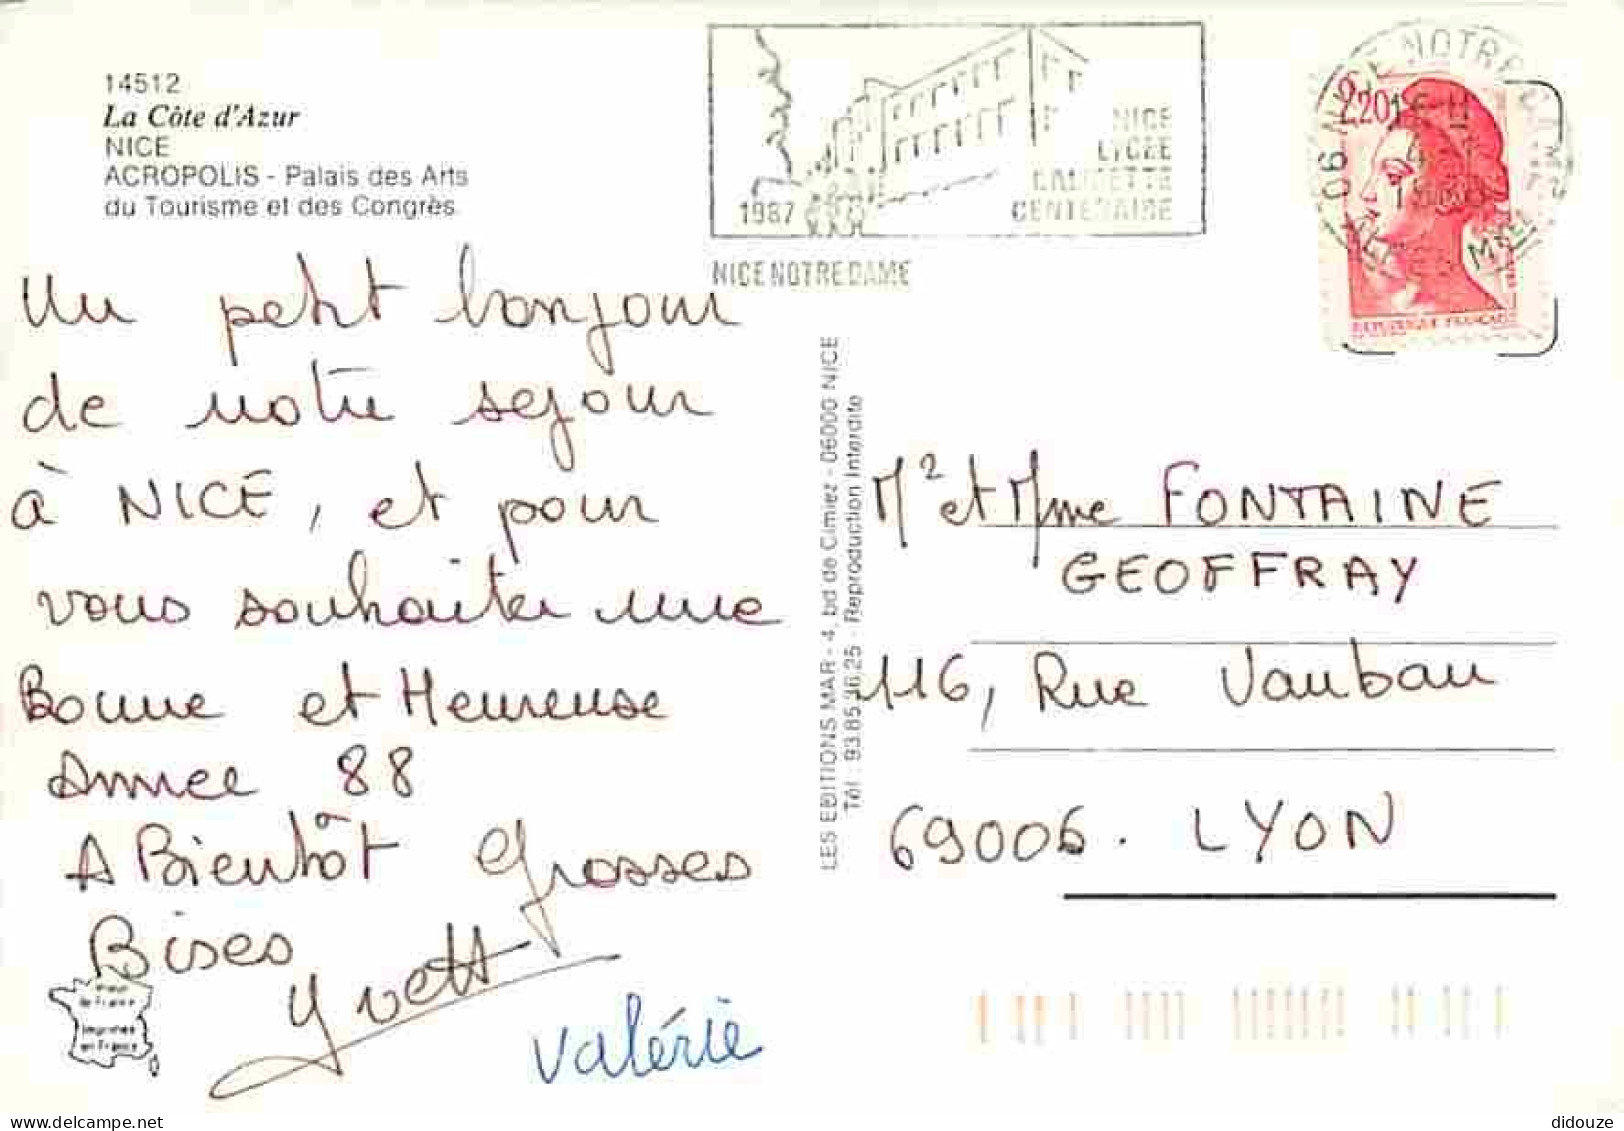 14512
La Côte d'Azur
NICE
ACROPOLIS - Palais des Arts
du Tourisme et des Congrès
1987
NICE
LYCEE
CALMETTE
CENTENAIRE
NICE NOTRE DAME
06 NICE NOTRE DAME
2,20
REPUBLIQUE FRANÇAISE
Un petit bonjour
de notre sejour
à NICE, et pour
vous souhaiter une
Bonne et Heureuse
Annee 88
A Bientôt Grosses
Bises
Yvett
Valérie
LES EDITIONS MAR - 4, bd de Cimiez - 06000 NICE
Tél : 93.85.36.25 - Reproduction Interdite
Mr et Mme FONTAINE
GEOFFRAY
116, Rue Vauban
69006. LYON
de France
Imprimée
en France
didouze